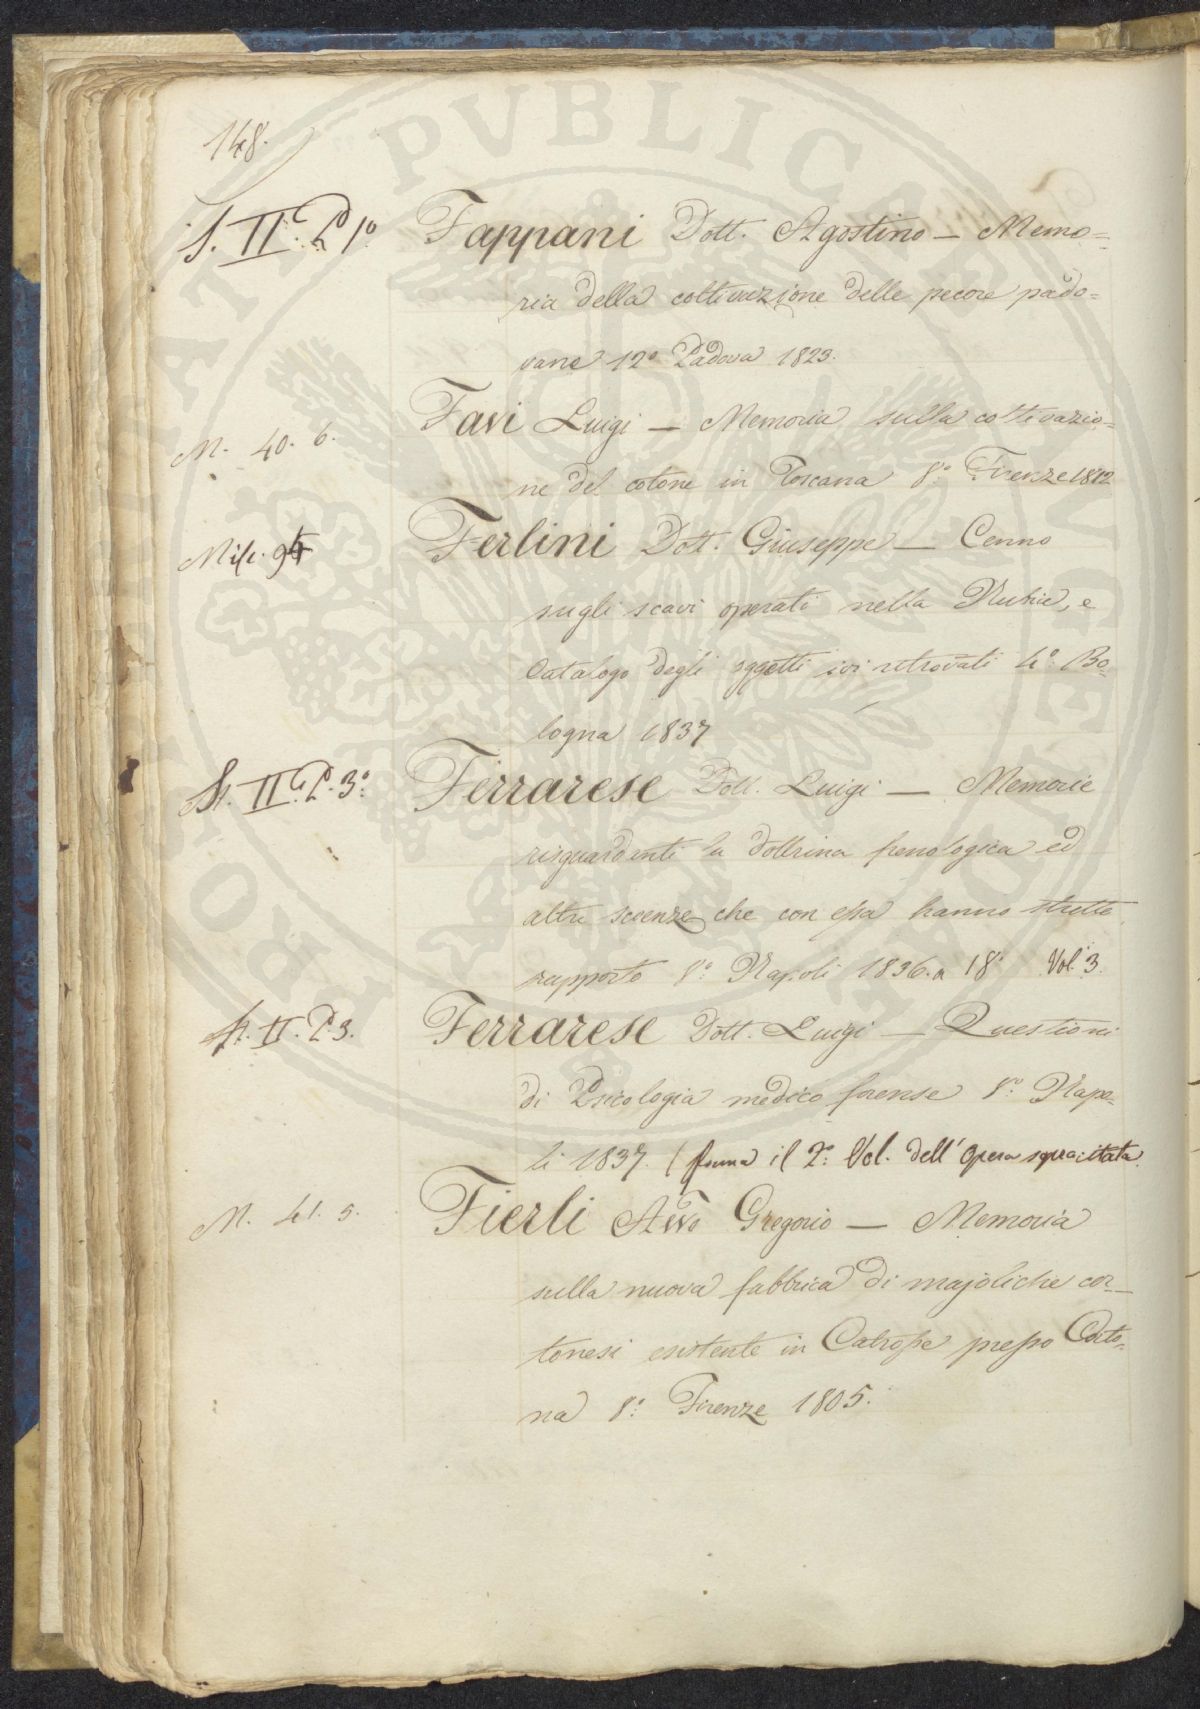 148.
S. II. P. 1º Fappani Dott. Agostino — Memo=
ria della coltivazione delle pecore pado=
vane 12º Padova 1823.
M. 40. 6. Favi Luigi — Memoria sulla coltivazio=
ne del cotone in Toscana 8º: Firenze 1812
Misc. 94 Ferlini Dott. Giuseppe — Cenno
sugli scavi operati nella Nubia, e
Catalogo degli oggetti ivi ritrovati 4º. Bo-
logna 1837
St. II. P. 3º. Ferrarese Dott. Luigi — Memorie
risguardanti la dottrina frenologica ed
altre scienze che con essa hanno stretto
rapporto 8º: Napoli 1836. a 18º Vol. 3.
St. II. P. 3. Ferrarese Dott. Luigi — Questioni
di Psicologia medico forense 8º: Napo-
li 1837. / forma il 2º: Vol. dell' Opera sopracitata
M. 41. 5. Fierli Avvo Gregorio — Memoria
sulla nuova fabbrica di majoliche cor-
tonesi esistente in Catrosse presso Corto-
na 8º: Firenze 1805.
PVBLICAE